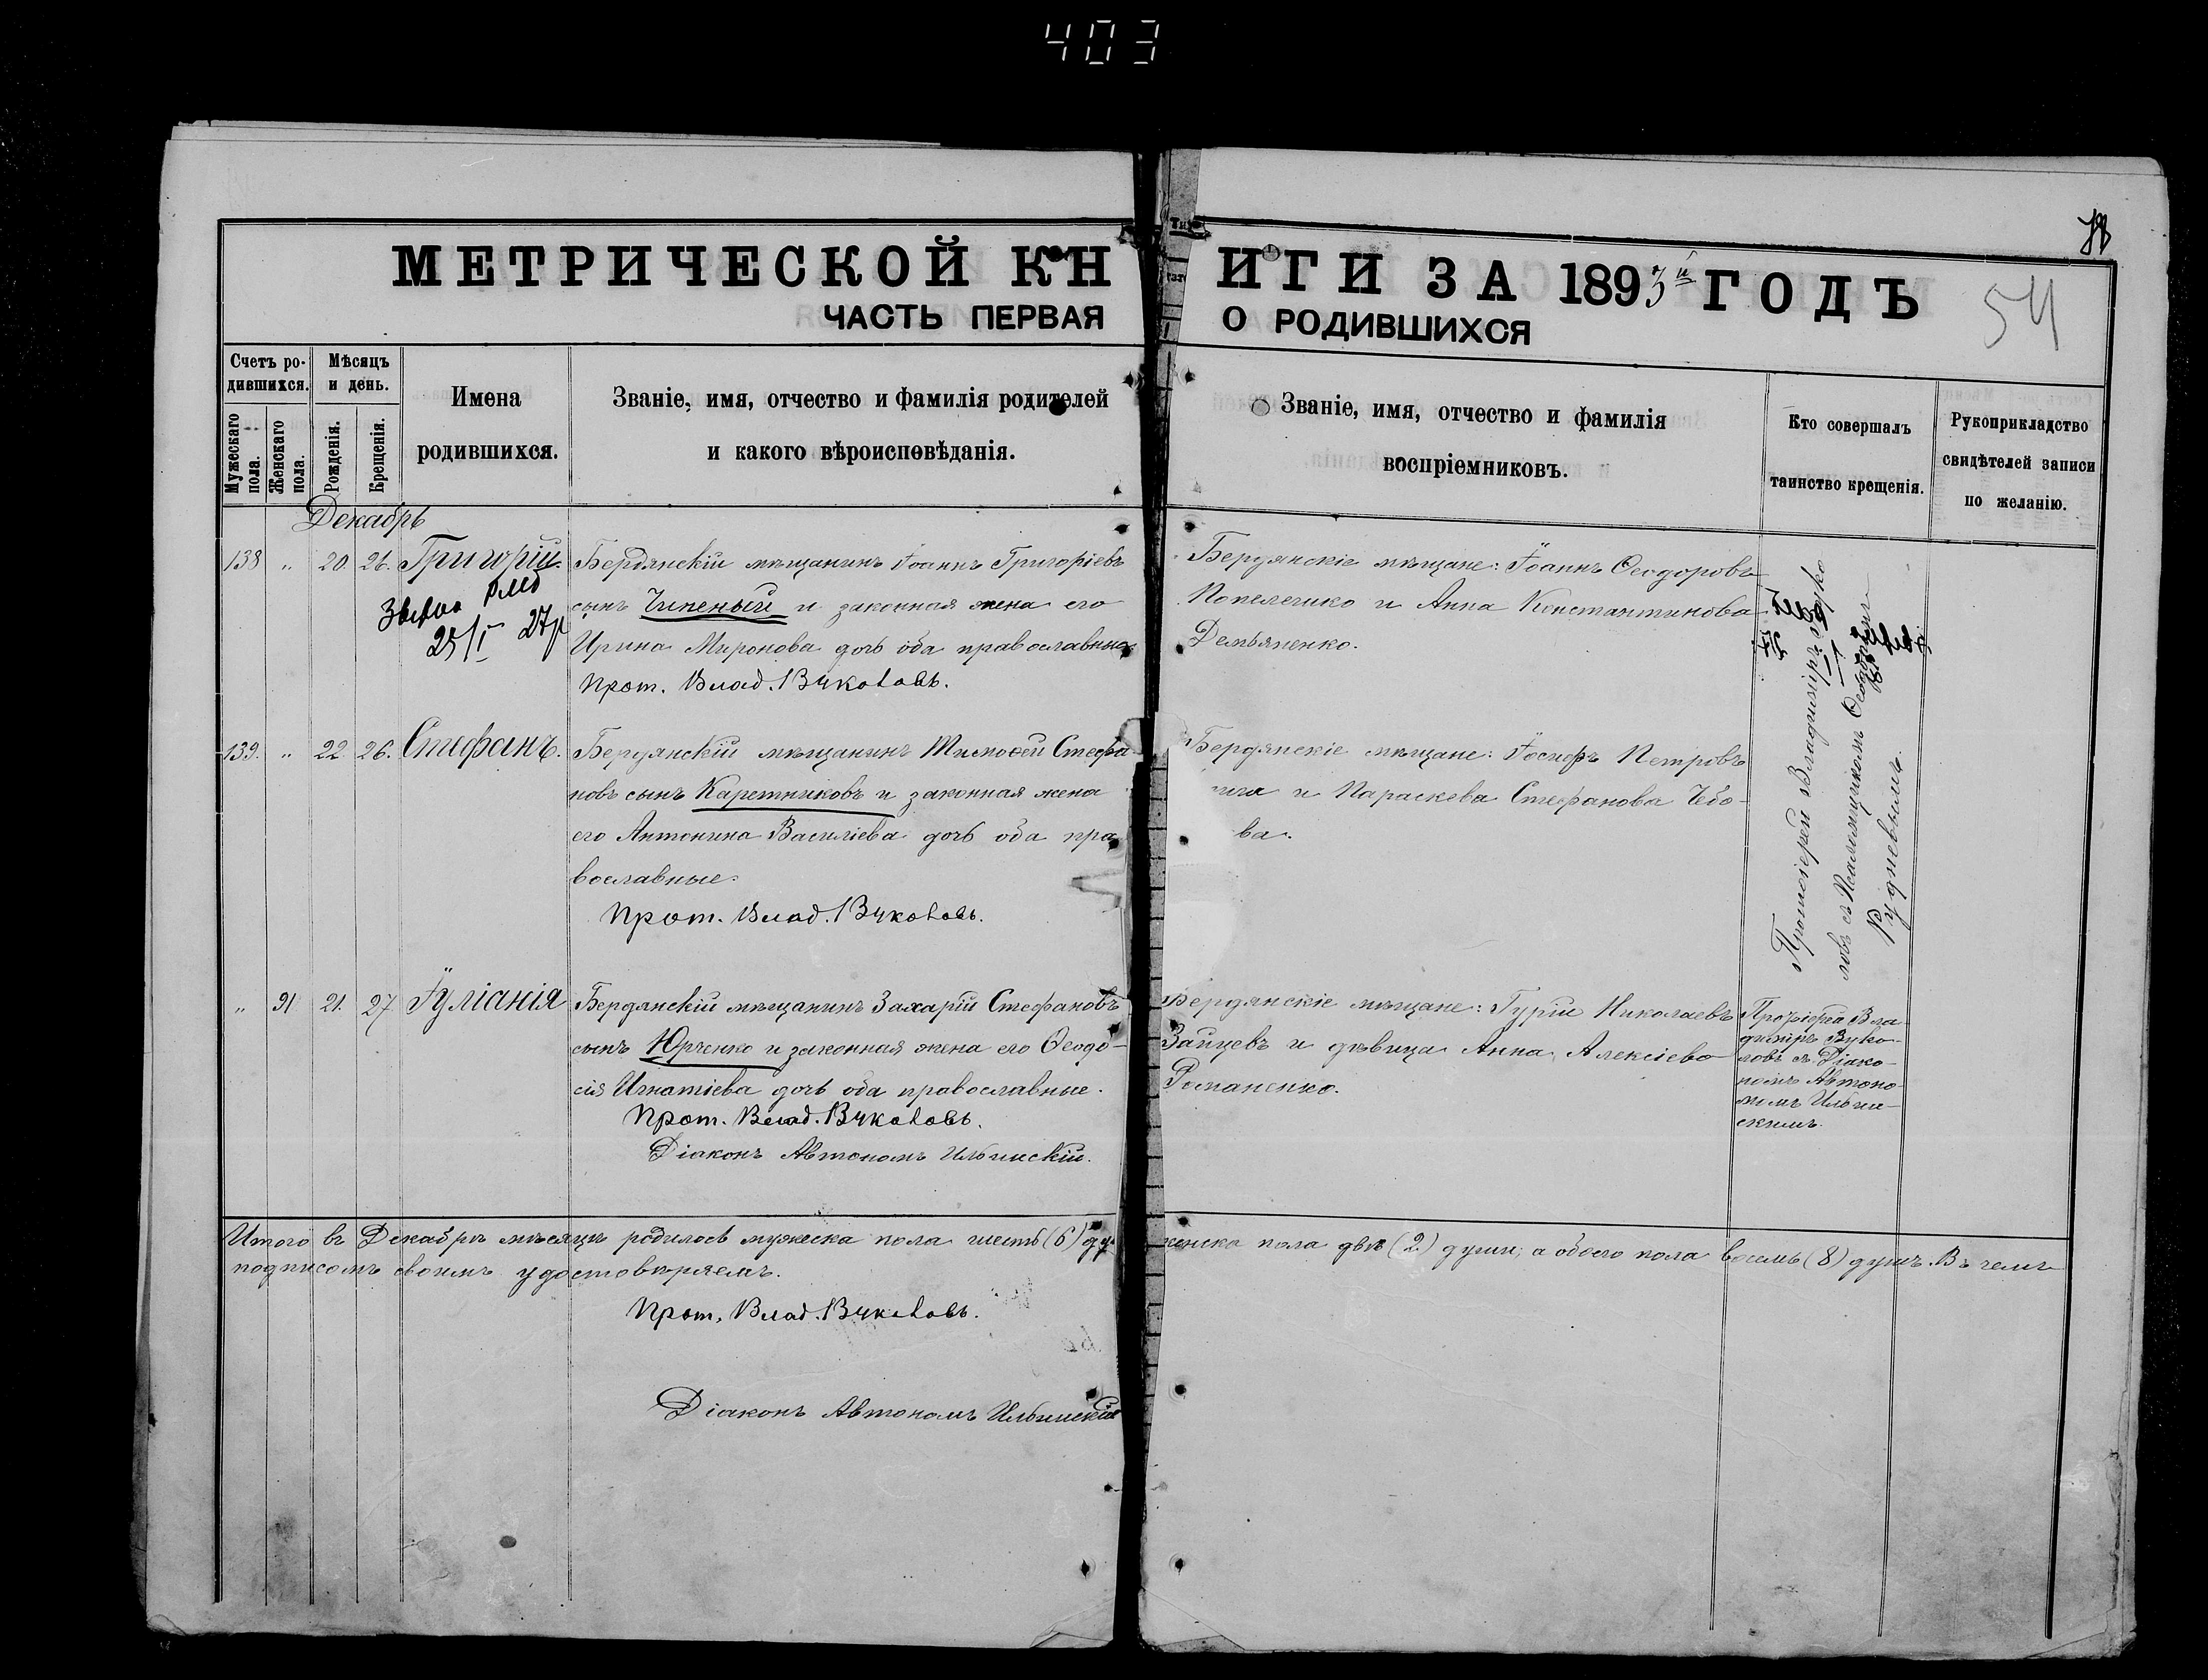 403
МЕТРИЧЕСКОЙ КНИГИ ЗА 1893й ГОДЪ
54
ЧАСТЬ ПЕРВАЯ О РОДИВШИХСЯ
Счетъ родившихся.
Мужескаго пола.
Женскаго пола.
Мѣсяцъ и день.
Рожденія.
Крещенія.
Имена
родившихся.
Званіе, имя, отчество и фамилія родителей
и какого вѣроисповѣданія.
Званіе, имя, отчество и фамилія
воспріемниковъ.
Кто совершалъ
таинство крещенія.
Рукоприкладство
свидѣтелей записи
по желанію.
Декабрь
138 " 20. 26. Григорій.
25/I 27р
Бердянскій мѣщанинъ Іоаннъ Григоріевъ
сынъ Чипеный и законная жена его
Ирина Миронова дочь оба православные
Прот. Влад. Вуколовъ.
Бердянскіе мѣщане: Іоаннъ Ѳеодоровъ
Попелешко и Анна Константинова
Демьяненко.
139. " 22 26. Стефанъ.
Бердянскій мѣщанинъ Тимоѳей Стефа-
новъ сынъ Каретниковъ и законная жена
его Антонина Василіева дочь оба пра-
вославные.
Прот. Влад. Вуколовъ.
Бердянскіе мѣщане: Іосифъ Петровъ
и Параскева Стефанова Чебо-
ва.
Протоіерей Владиміръ Вуко-
ловъ съ Псаломщикомъ Ѳеодоромъ
Рудневымъ.
" 91 21. 27 Іуліанія
Бердянскій мѣщанинъ Захарій Стефановъ
сынъ Юрченко и законная жена его Ѳеодо-
сія Игнатіева дочь оба православные.
Прот. Влад. Вуколовъ.
Діаконъ Автономъ Ильинскій.
Бердянскіе мѣщане: Гурій Николаевъ
Зайцевъ и дѣвица Анна Алексіева
Романенко.
Протоіерей Вла-
диміръ Вуко-
ловъ съ Діако-
номъ Автоно-
момъ Ильин-
скимъ.
Итого въ Декабрѣ мѣсяцѣ родилось мужеска пола шесть (6) ду женска пола двѣ (2) души; а обоего пола восемь (8) душъ. Въ чемъ
подписомъ своимъ удостовѣряемъ.
Прот. Влад. Вуколовъ.
Діаконъ Автономъ Ильинскій